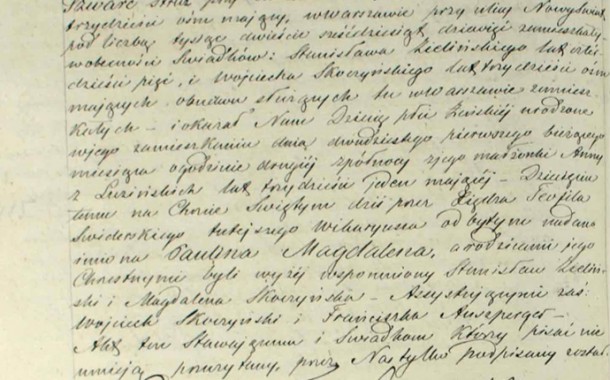 Szwarc Stróż przy
trzydzieści ośm mający, w Warszawie przy ulicy Nowyświat
pod liczbą tysiąc dwieście sześćdziesiąt dziewięć zamieszkały
w obecności Świadków: Stanisława Zielińskiego lat czter
dzieści pięć, i Wojciecha Skoczyńskiego lat trzydzieści ośm
mających obudwu służących tu w Warszawie zamiesz
kałych – i okazał Nam Dziecię płci Żeńskiej urodzone
w jego zamieszkaniu dnia dwudziestego pierwszego bieżącego
miesiąca o godzinie drugiéj z północy z jego małżonki Anny
z Luzińskich lat trzydzieści jeden mającéj – Dziecięciu
temu na Chrzcie Świętym dziś przez Xiędza Teofila
Swiderskiego tutejszego Wikaryusza odbytym nadane
imiona Paulina Magdalena, a rodzicami jego
Chrzestnymi byli wyżéj wspomniony Stanisław Zieliń-
ski i Magdalena Skoczyńska – Assystującymi zaś:
Wojciech Skoczyński i Franciszka Auszperger –
Akt ten Stawającemu i Świadkom którzy pisać nie
umieją przeczytany, przez Nas tylko podpisany został.